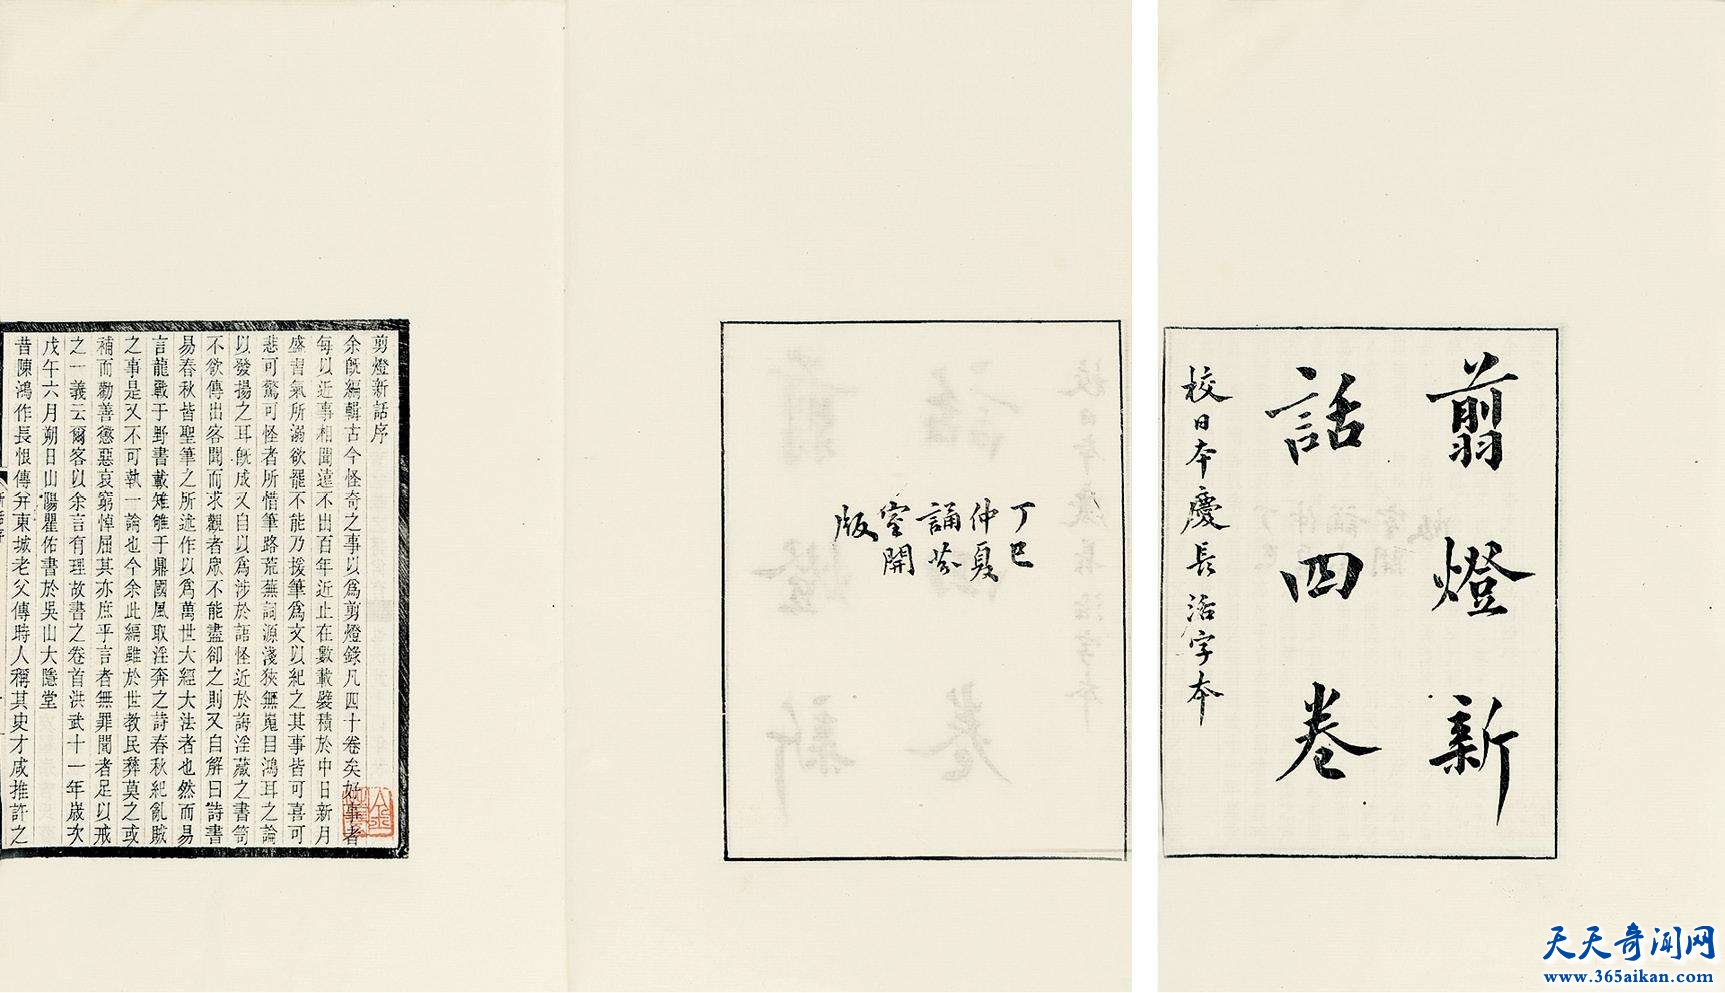 翦燈新
話四卷
校日本慶長活字本
丁巳
仲夏
誦芬
室開
版
剪燈新話序
余旣編輯古今怪奇之事以爲剪燈錄凡四十卷矣好事者
每以近事相聞遠不出百年近止在數載襞積於中日新月
盛習氣所溺欲罷不能乃援筆爲文以紀之其事皆可喜可
悲可驚可怪者所惜筆路荒蕪詞源淺狹無嵬目鴻耳之論
以發揚之耳旣成又自以爲涉於語怪近於誨淫藏之書笥
不欲傳出客聞而求觀者眾不能盡卻之則又自解曰詩書
易春秋皆聖筆之所述作以爲萬世大經大法者也然而易
言龍戰于野書載雉雊于鼎國風取淫奔之詩春秋紀亂賊
之事是又不可執一論也今余此編雖於世教民彝莫之或
補而勸善懲惡哀窮悼屈其亦庶乎言者無罪聞者足以戒
之一義云爾客以余言有理故書之卷首洪武十一年歲次
戊午六月朔日山陽瞿佑書於吳山大隱堂
昔陳鴻作長恨傳并東城老父傳時人稱其史才咸推許之
天天奇闻网
www.365aikan.com